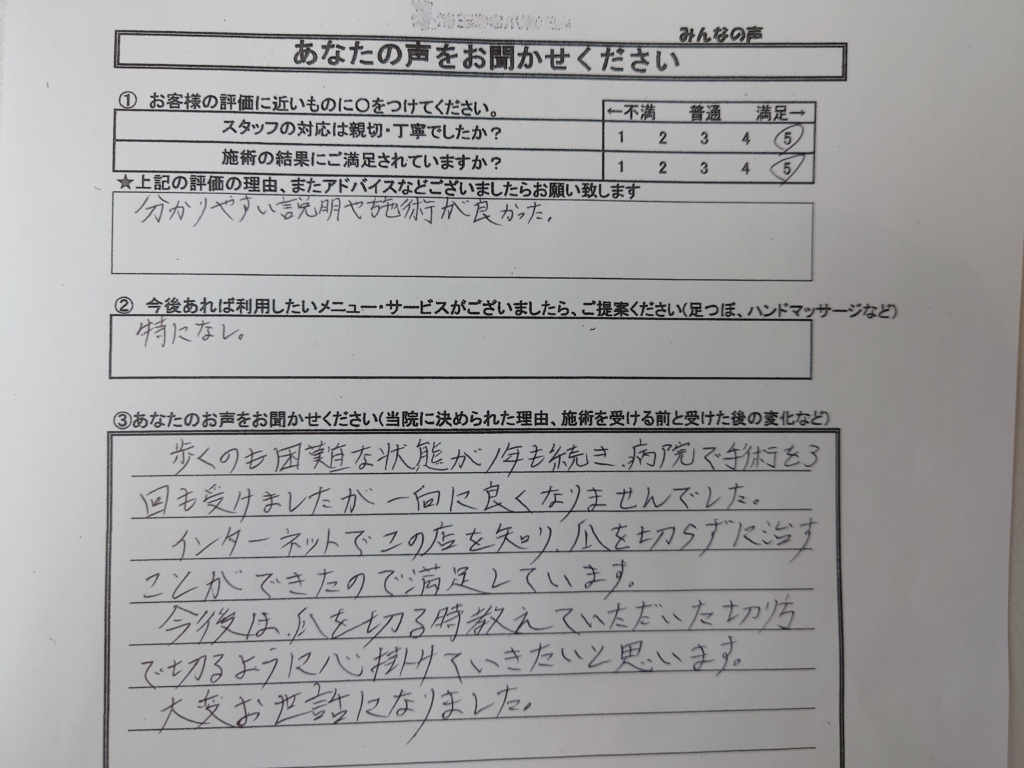 みんなの声
あなたの声をお聞かせください
① お客様の評価に近いものに〇をつけてください。
←不満 普通 満足→
スタッフの対応は親切・丁寧でしたか？ 1 2 3 4 5
施術の結果にご満足されていますか？ 1 2 3 4 5
★上記の評価の理由、またアドバイスなどございましたらお願い致します
分かりやすい説明や施術が良かった。
② 今後あれば利用したいメニュー・サービスがございましたら、ご提案ください(足つぼ、ハンドマッサージなど)
特になし。
③あなたのお声をお聞かせください(当院に決められた理由、施術を受ける前と受けた後の変化など)
歩くのも困難な状態が1年も続き、病院で手術を3
回も受けましたが一向に良くなりませんでした。
インターネットでこの店を知り、爪を切らずに治す
ことができたので満足しています。
今後は、爪を切る時教えていただいた切り方
で切るように心掛けていきたいと思います。
大変お世話になりました。